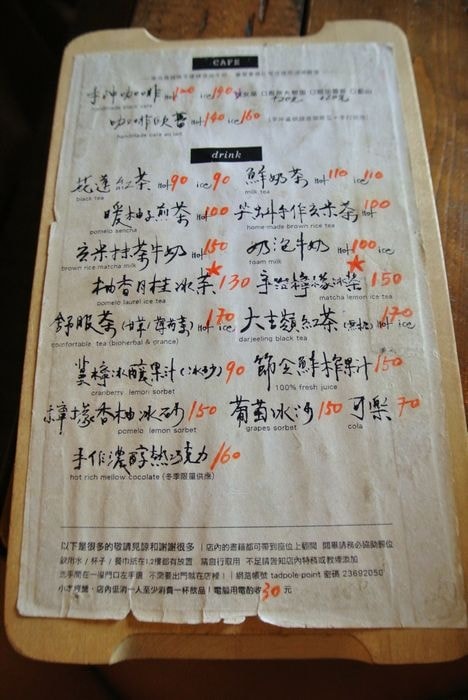 CAFE
手沖咖啡 Hot 100 ice 190
handmade black cafe
咖啡歐蕾 Hot 140 ice 160
handmade cafe au lait
drink
花蓮紅茶 Hot 90 ice 90 鮮奶茶 Hot 110 ice 110
black tea milk tea
暖柚子煎茶 Hot 100 尖斗手作玄米茶 Hot 100
pomelo sencha home-made brown rice tea
玄米抹茶牛奶 Hot 150 奶泡牛奶 Hot 100 ice
brown rice matcha milk foam milk
柚香月桂冰茶 130 檸檬冰茶 150
pomelo laurel ice tea matcha lemon ice tea
舒服茶 Hot 170 ice 大吉嶺紅茶 Hot 170
comfortable tea (bioherbal & grance) darjeeling black tea
蔓檸冰釀果汁(冰砂) 90 節令鮮榨果汁 150
cranberry lemon sorbet 100% fresh juice
檸檬香柚冰砂 150 葡萄冰沙 150 可樂 70
pomelo lemon sorbet grapes sorbet cola
手作濃醇熱巧克力 160
hot rich mellow cocolate (冬季限量供應)
以下是很多的敬請見諒和謝謝很多 | 店內的書籍都可帶到座位上翻閱 閱畢請務必協助歸位
飲用水 / 杯子 / 餐巾紙在1.2樓都有放置 請自行取用 不足請告知店內特務或教練添加
洗手間在一樓門口左手邊 不需要出門就在店裡! | 網路帳號 tadpole-point 密碼 23692050
店內低消一人至少消費一杯飲品! 電腦用電酌收 30 元